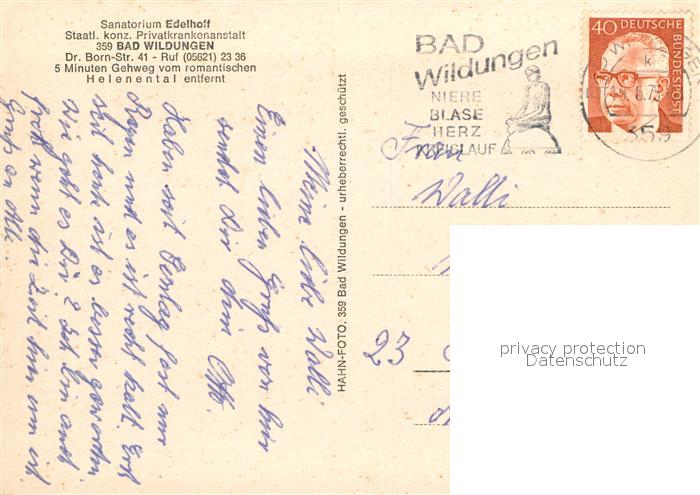 Sanatorium Edelhoff
Staatl. konz. Privatkrankenanstalt
359 BAD WILDUNGEN
Dr. Born-Str. 41 - Ruf (05621) 23 36
5 Minuten Gehweg vom romantischen
Helenental entfernt
Meine liebe Walli
Einen lieben Gruß von hier
sendet Dir dein
Haben seit fast nur
Regen und es ist recht kalt. Erst
seit heute ist es besser geworden.
Wie geht es Dir?
froh wenn die Zeit hier um ist.
Gruß an Alle.
HAHN-FOTO. 359 Bad Wildungen - urheberrechtl. geschützt
BAD
Wildungen
NIERE
BLASE
HERZ
KREISLAUF
40 DEUTSCHE
BUNDESPOST
359
Frau
Walli
23
privacy protection
Datenschutz